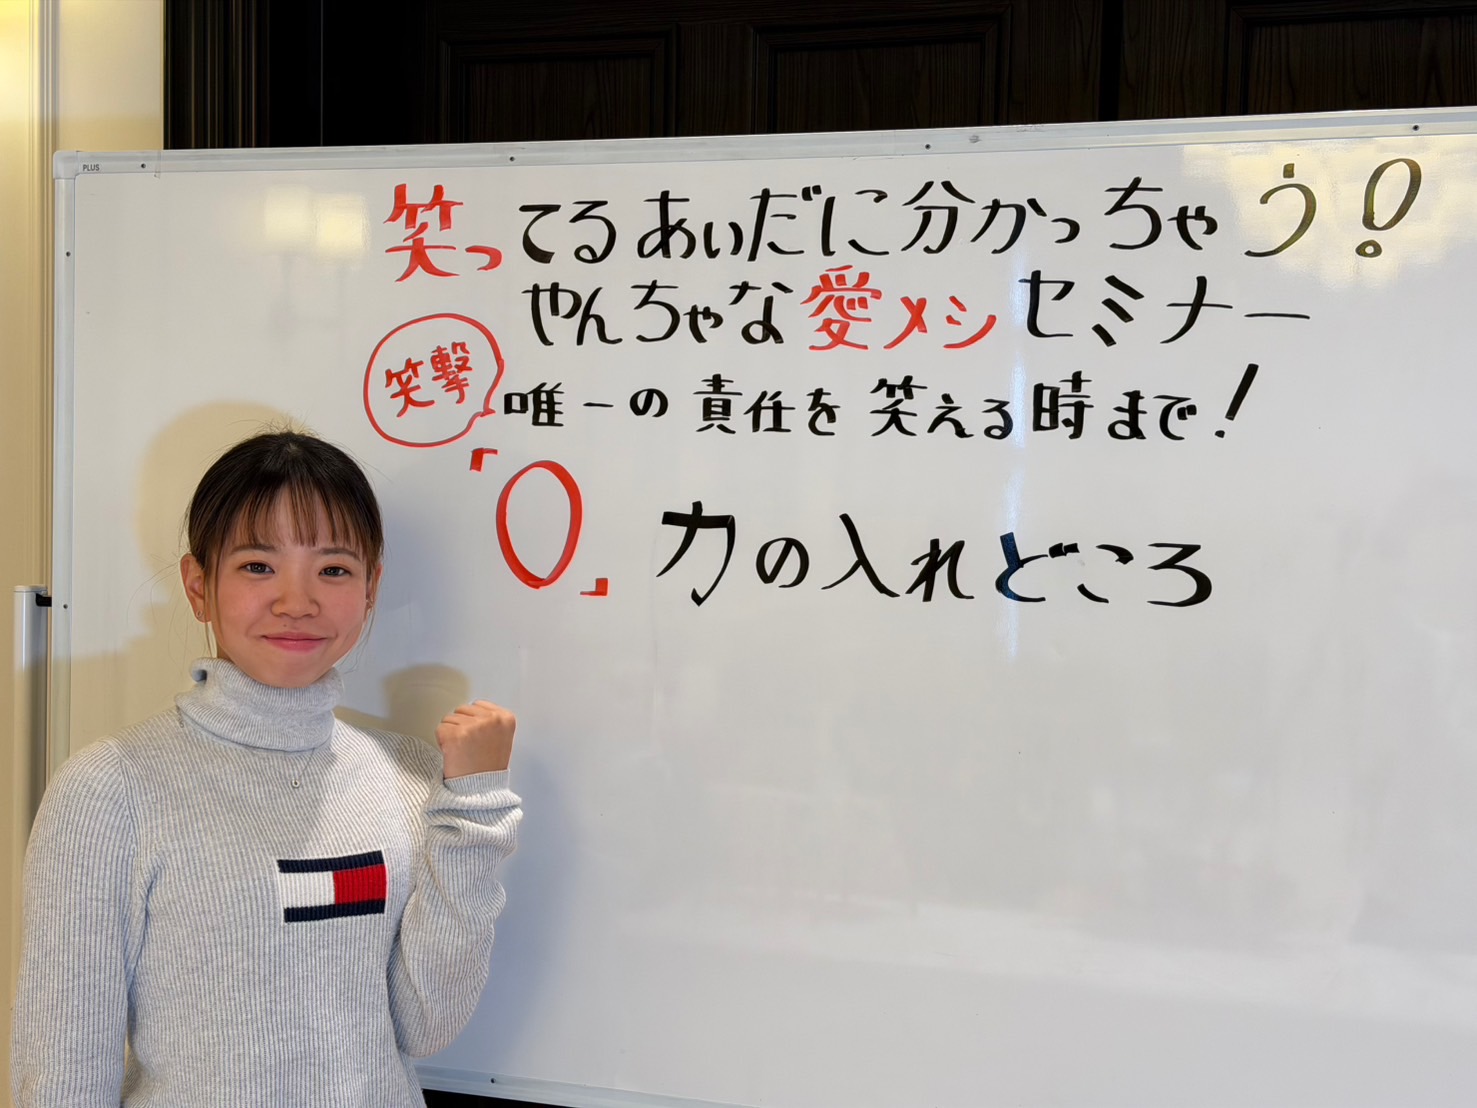 PLUS
笑ってるあいだに分かっちゃう!
やんちゃな愛メシセミナー
笑撃
唯一の責任を笑える時まで!
「0」力の入れどころ